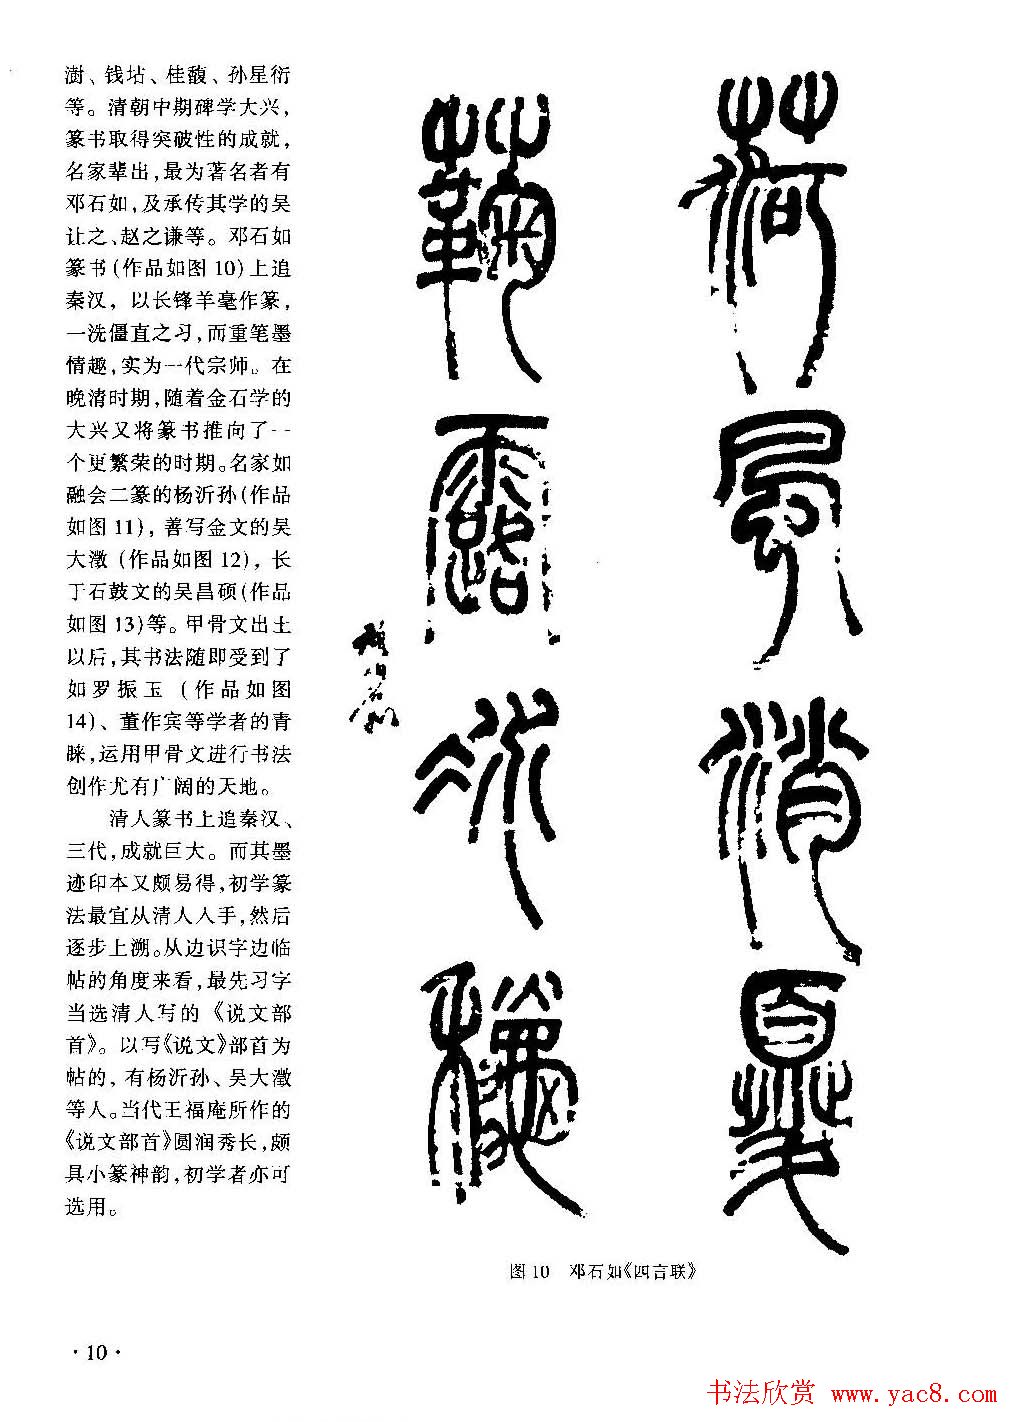 澍、钱坫、桂馥、孙星衍
等。清朝中期碑学大兴，
篆书取得突破性的成就，
名家辈出，最为著名者有
邓石如，及承传其学的吴
让之、赵之谦等。邓石如
篆书（作品如图 10）上追
秦汉，以长锋羊毫作篆，
一洗僵直之习，而重笔墨
情趣，实为一代宗师。在
晚清时期，随着金石学的
大兴又将篆书推向了一
个更繁荣的时期。名家如
融会二篆的杨沂孙（作品
如图 11），善写金文的吴
大澂（作品如图 12），长
于石鼓文的吴昌硕（作品
如图 13）等。甲骨文出土
以后，其书法随即受到了
如罗振玉（作品如图
14）、董作宾等学者的青
睐，运用甲骨文进行书法
创作尤有广阔的天地。
清人篆书上追秦汉、
三代，成就巨大。而其墨
迹印本又颇易得，初学篆
法最宜从清人入手，然后
逐步上溯。从边识字边临
帖的角度来看，最先习字
当选清人写的《说文部
首》。以写《说文》部首为
帖的，有杨沂孙、吴大澂
等人。当代王福庵所作的
《说文部首》圆润秀长，颇
具小篆神韵，初学者亦可
选用。
荷風消夏
蘜露冰龝
图 10 邓石如《四言联》
·10·
书法欣赏 www.yac8.com